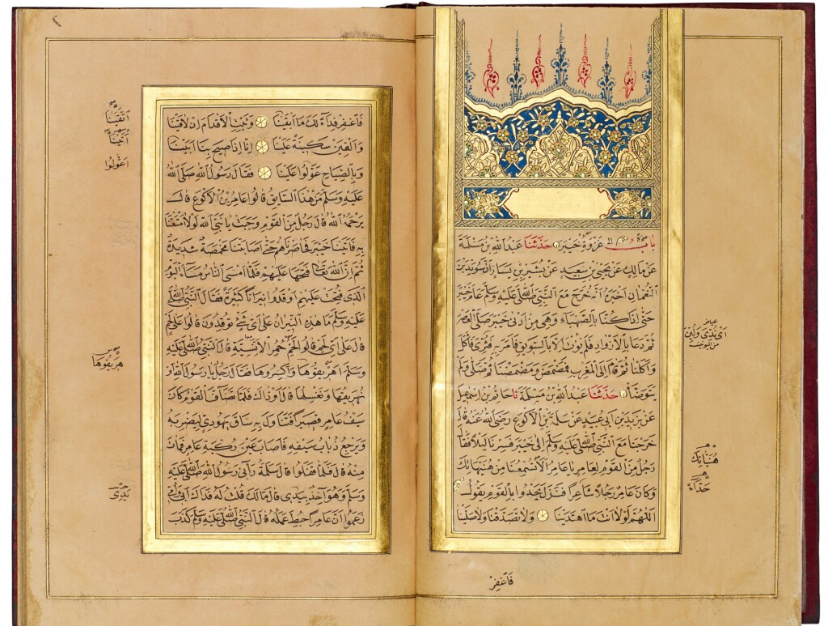 باب غزوة خيبر حدثنا عبد الله بن مسلمة
عن مالك عن يحيى بن سعيد عن بشير بن يسار ان سويد بن
النعمان اخبره انه خرج مع النبي صلى الله عليه وسلم عام خيبر
حتى اذا كنا بالصهباء وهي من ادنى خيبر صلى العصر
ثم دعا بالازواد فلم يؤت الا بالسويق فامر به فثري فاكل
واكلنا ثم قام الى المغرب فمضمض ومضمضنا ثم صلى ولم
يتوضأ حدثنا عبد الله بن مسلمة نا حاتم بن اسمعيل
عن يزيد بن ابي عبيد عن سلمة بن الاكوع رضي الله عنه قال
خرجنا مع النبي صلى الله عليه وسلم الى خيبر فسرنا ليلا فقال
رجل من القوم لعامر يا عامر الا تسمعنا من هنيهاتك
وكان عامر رجلا شاعرا فنزل يحدو بالقوم يقول
اللهم لولا انت ما اهتدينا ولا تصدقنا ولا صلينا
هنياتك
حداء
فاغفر
فاغفر فداء لك ما ابقينا وثبت الاقدام ان لاقينا
والقين سكينة علينا انا اذا صيح بنا ابينا
وبالصياح عولوا علينا فقال رسول الله صلى الله
عليه وسلم من هذا السائق قالوا عامر بن الاكوع قال
يرحمه الله قال رجل من القوم وجبت يا نبي الله لولا امتعتنا
به فاتينا خيبر فحاصرناهم حتى اصابتنا مخمصة شديدة
ثم ان الله تعالى فتحها عليهم فلما امسى الناس مساء اليوم
الذي فتحت عليهم اوقدوا نيرانا كثيرة فقال النبي صلى الله
عليه وسلم ما هذه النيران على اي شيء توقدون قالوا على لحم
قال على اي لحم قالوا لحم حمر الانسية قال النبي صلى الله عليه
وسلم اهريقوها واكسروها فقال رجل يا رسول الله او
نهريقها ونغسلها قال او ذاك فلما تصاف القوم كان
سيف عامر قصيرا فتناول به ساق يهودي ليضربه
ويرجع ذباب سيفه فاصاب عين ركبة عامر فمات
منه قال فلما قفلوا قال سلمة رآني رسول الله صلى الله عليه
وسلم وهو آخذ بيدي قال مالك قلت له فداك ابي وامي
زعموا ان عامرا حبط عمله قال النبي صلى الله عليه وسلم كذب
اتقينا
اتينا
اعولوا
هريقوها
يدي